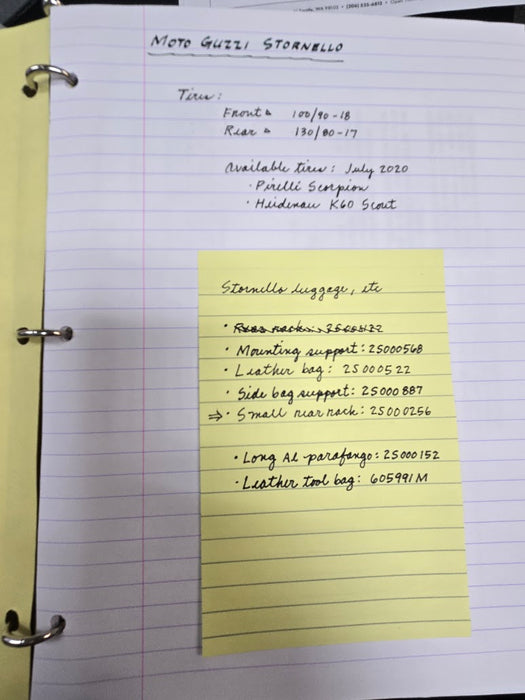 MOTO GUZZI STORNELLO
Tires:
Front 100/90-18
Rear 130/80-17
Available tires: July 2020
· Pirelli Scorpion
· Heidenau K60 Scout
Stornello luggage, etc
· Rear rack: 25000522
· Mounting support: 2S000568
· Leather bag: 2S000522
· Side bag support: 2S000887
⇒ · Small rear rack: 2S000256
· Long Al parafango: 2S000152
· Leather tool bag: 605991M